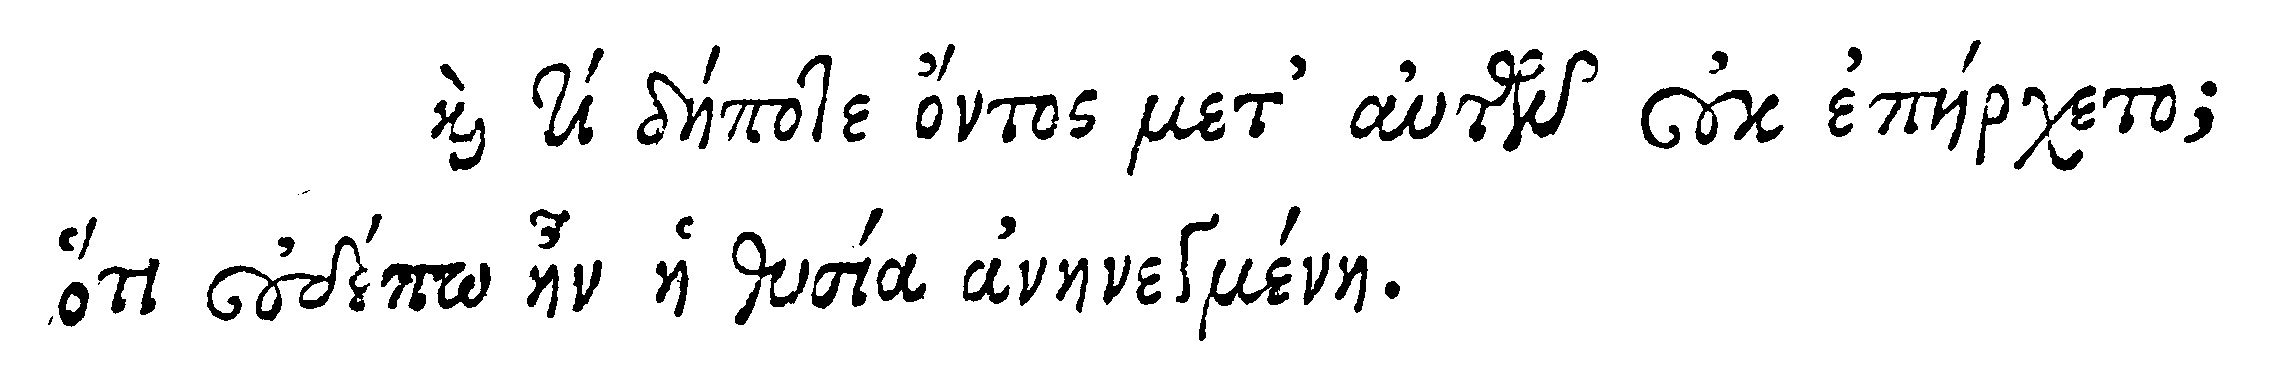 καὶ τί δήποτε ὄντος μετ' αὐτῶν οὐκ ἐπήρχετο;
ὅτι οὐδέπω ἦν ἡ θυσία ἀνηνεγμένη.